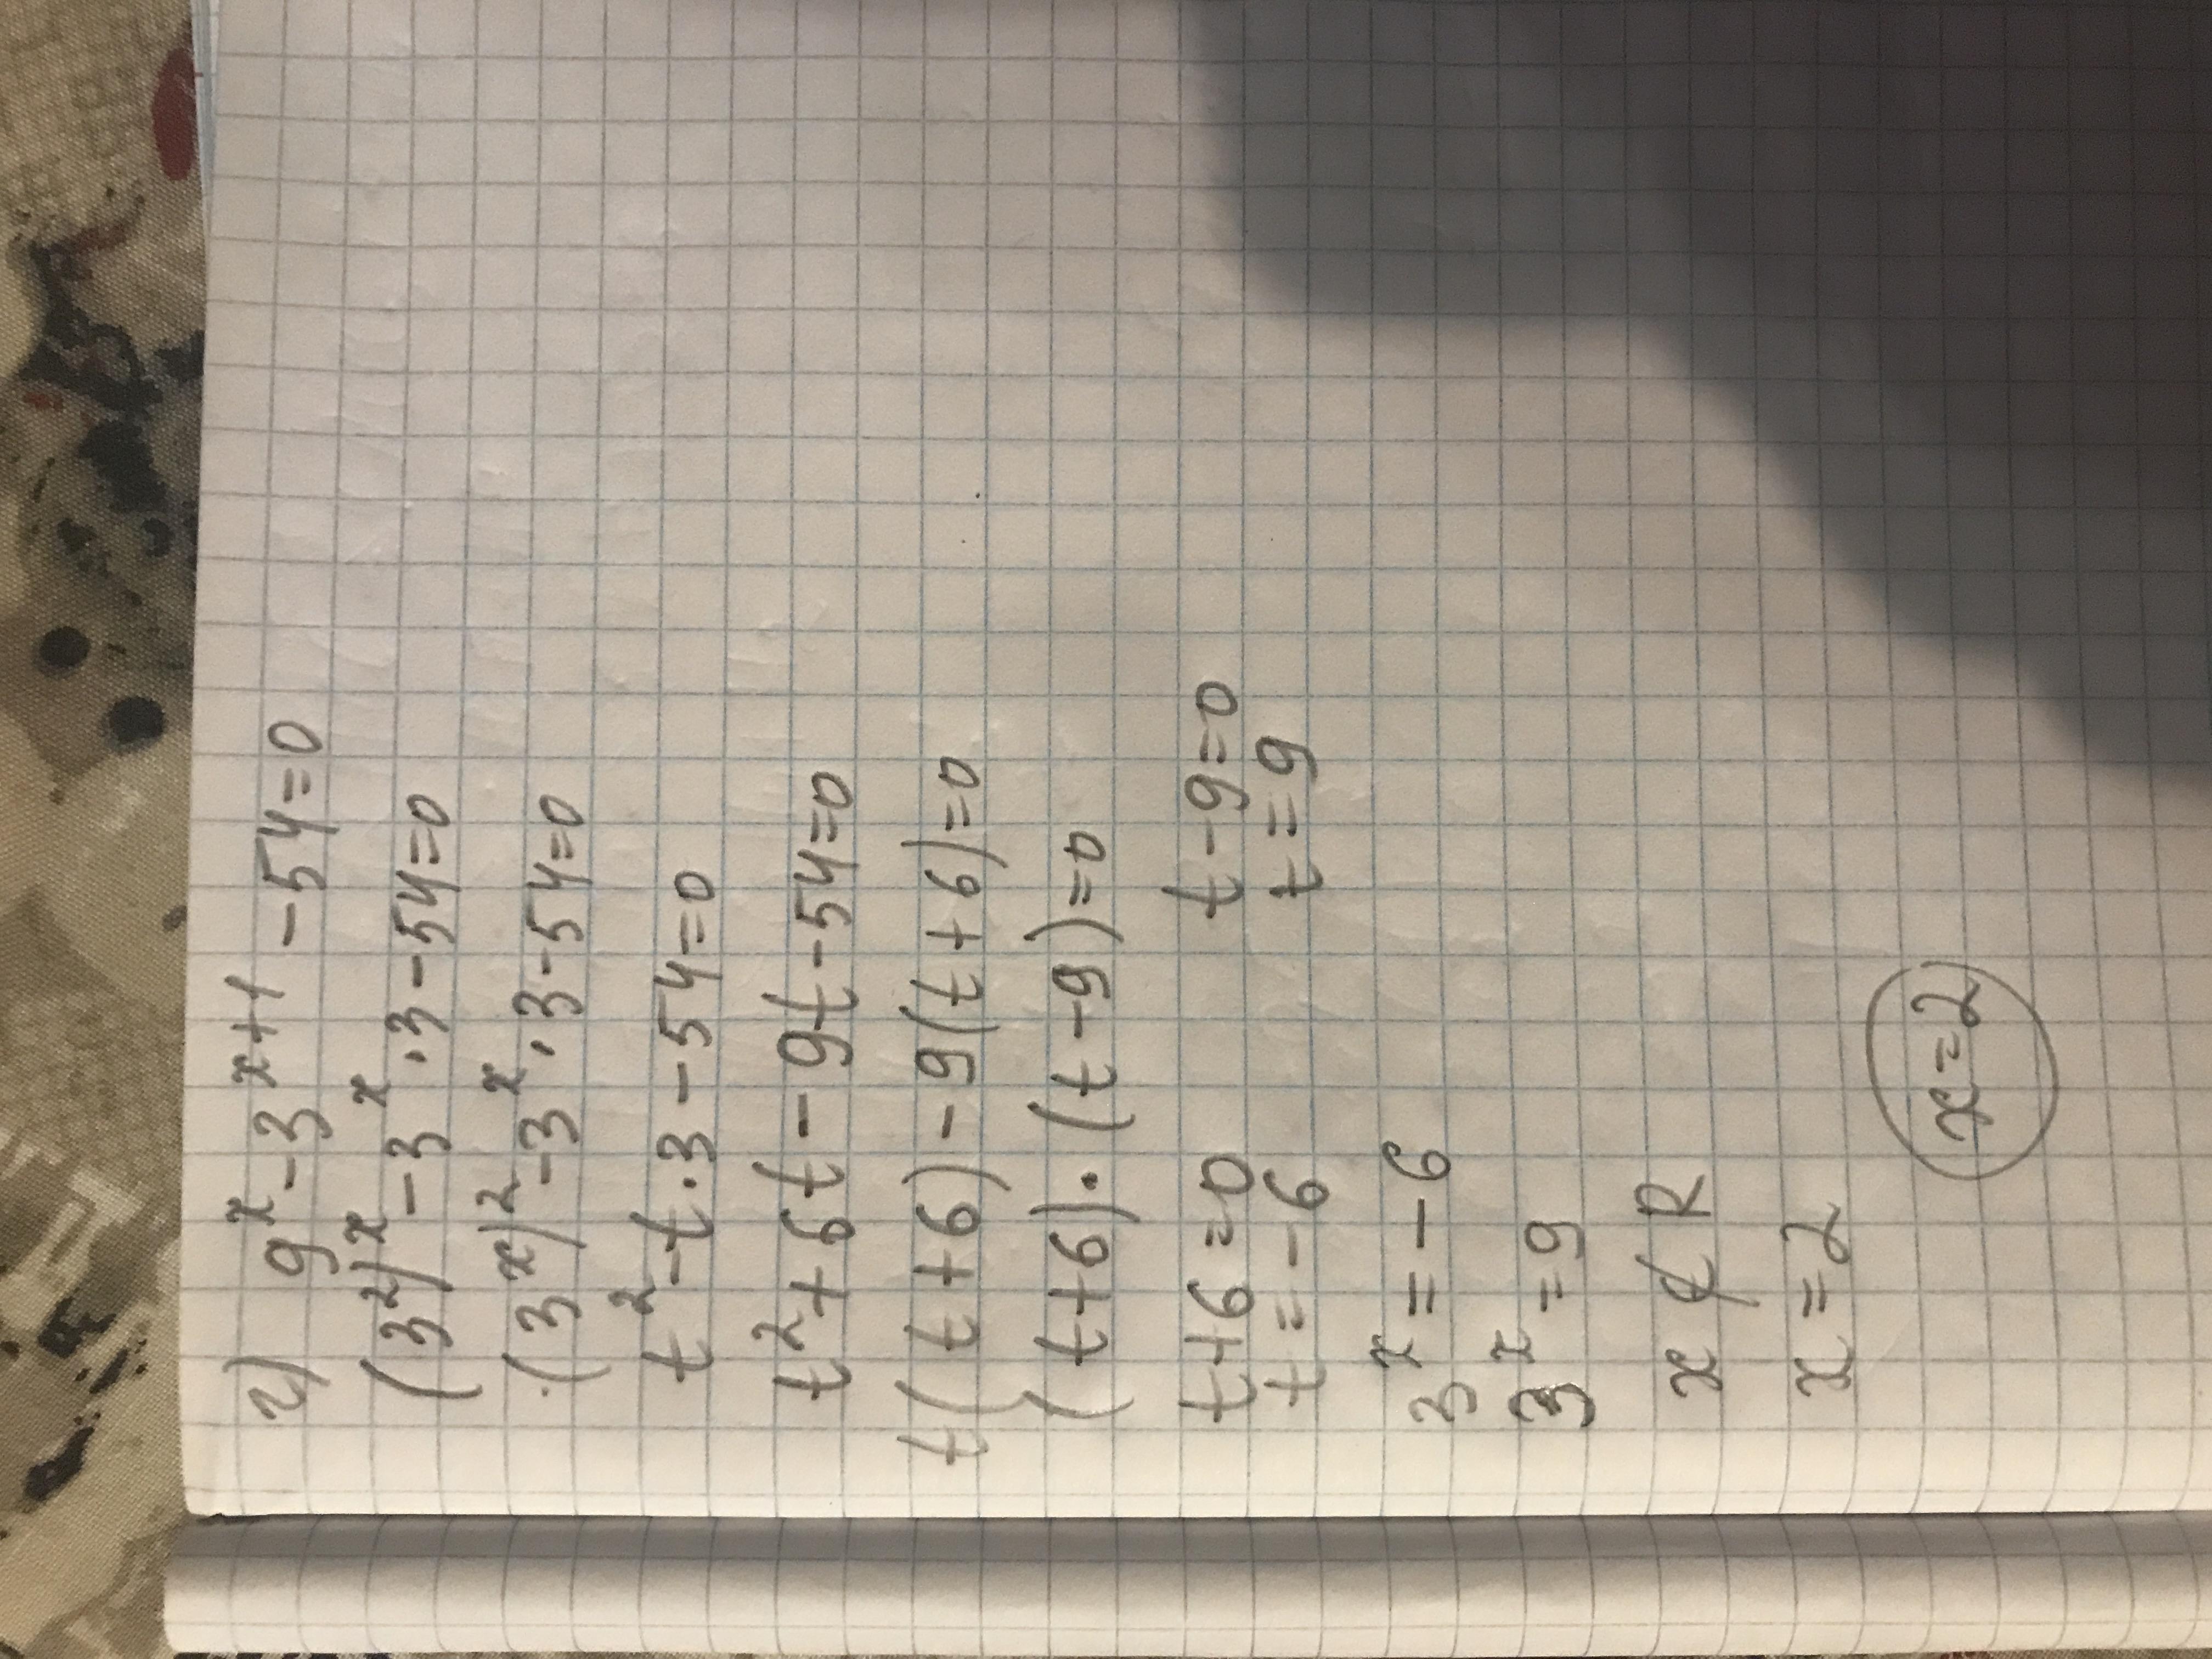 г) 9^x - 3^{x+1} - 54 = 0
(3^2)^x - 3^x · 3 - 54 = 0
(3^x)^2 - 3^x · 3 - 54 = 0
t^2 - t · 3 - 54 = 0
t^2 + 6t - 9t - 54 = 0
t(t + 6) - 9(t + 6) = 0
(t + 6) · (t - 9) = 0
t + 6 = 0 t - 9 = 0
t = -6 t = 9
3^x = -6
3^x = 9
x ∉ R
x = 2
x = 2